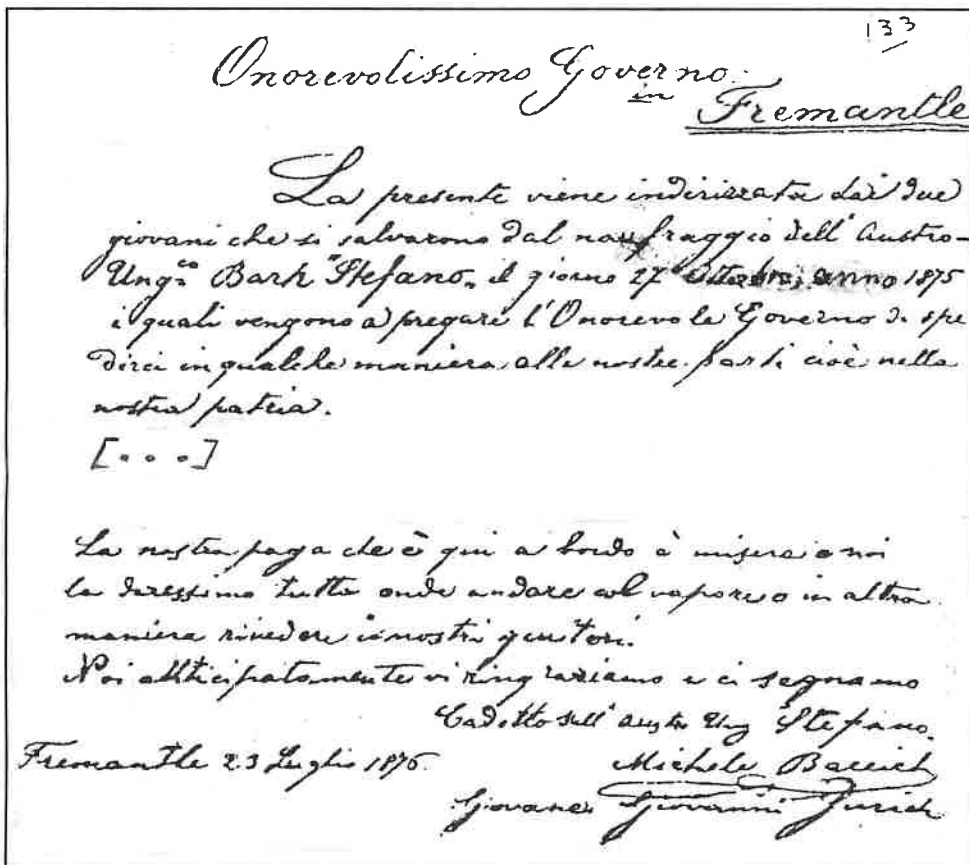 133
Onorevolissimo Governo
in
Fremantle
La presente viene indirizzata dai due
giovani che si salvarono dal naufraggio dell' Austro-
Ung.co Bark "Stefano" il giorno 27 Ottobre, anno 1875
i quali vengono a pregare l'Onorevole Governo di spe
dirci in qualche maniera alle nostre parti cioè nella
nostra patria.
[...]
La nostra paga che è qui a bordo è misera e noi
la daressimo tutta onde andare col vapore o in altra
maniera rivedere i nostri genitori.
Noi atticipatamente vi ringraziamo e ci segnamo
Cadetto sull' Austro Ung Stefano.
Fremantle 23 Luglio 1876.
Michele Baccich
Giovane Giovanni Jurich